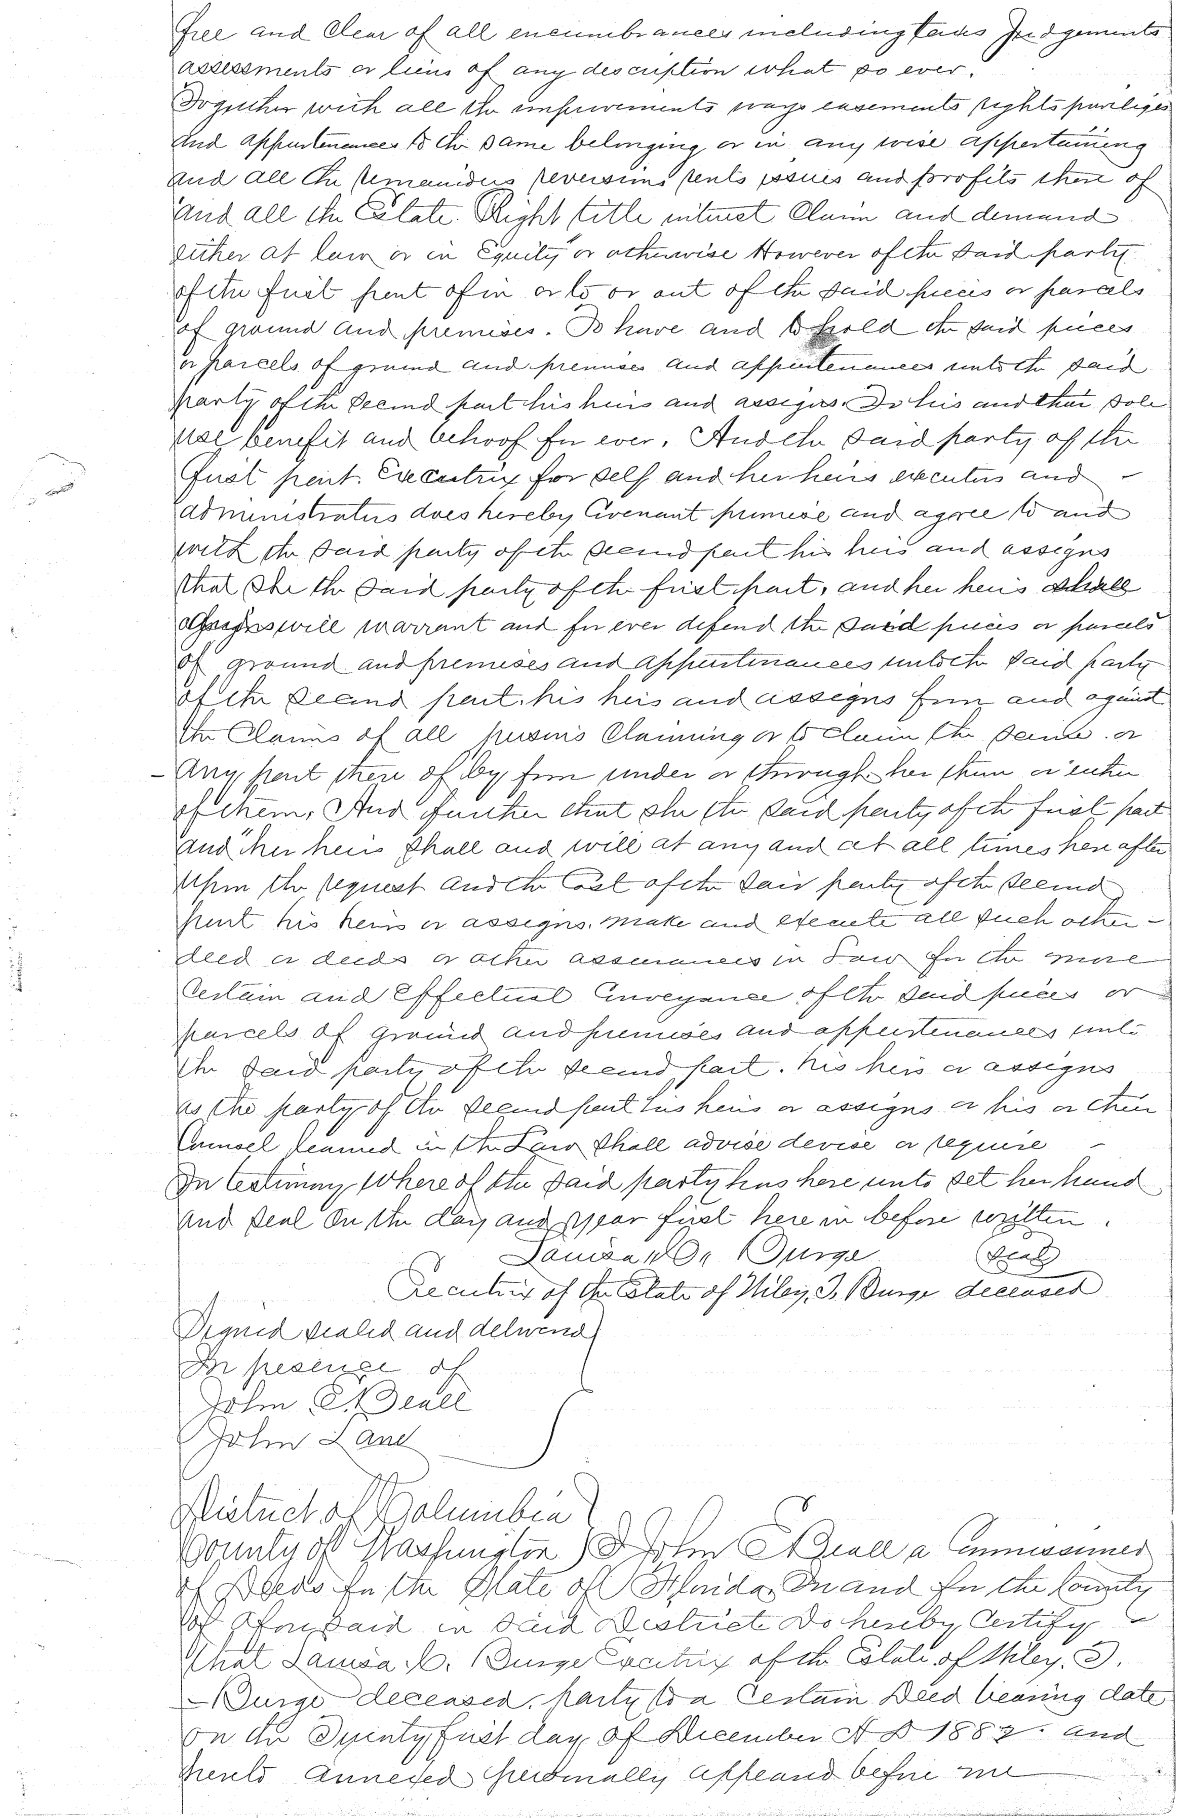 free and Clear of all encumbrances including taxes Judgements
assessments or liens of any description what so ever.
Together with all the improvements ways easements rights priviliges
and appurtenances to the same belonging or in any wise appertaining
and all the remainders reversions rents issues and profits there of
and all the Estate. Right title interest Claim and demand
either at law or in Equity or otherwise However of the said party
of the first part of in or to or out of the said pieces or parcels
of ground and premises. To have and to hold the said pieces
or parcels of ground and premises and appurtenances unto the said
party of the second part his heirs and assigns. To his and their sole
use benefit and behoof for ever. And the said party of the
first part. Executrix for self and her heirs executors and -
administrators does hereby Covenant promise and agree to and
with the said party of the second part his heirs and assigns
that she the said party of the first part, and her heirs shall
assigns will warrant and for ever defend the said pieces or parcels
of ground and premises and appurtenances unto the said party
of the second part. his heirs and assigns from and against
the Claims of all persons Claiming or to claim the same or
- Any part there of by from under or through her them or either
of them. And further that she the said party of the first part
and her heirs shall and will at any and at all times here after
upon the request and the Cost of the said party of the second
part his heirs or assigns. make and execute all such other -
deed or deeds or other assurances in Law for the more
Certain and Effectual Conveyance of the said pieces or
parcels of ground and premises and appurtenances unto
the said party of the second part. his heirs or assigns
as the party of the second part his heirs or assigns or his or their
Counsel learned in the Law shall advise devise or require -
In testimony Where of the said party has here unto set her hand
and seal On the day and year first here in before written.
Louisa Burge (seal)
Executrix of the Estate of Wiley. J. Burge deceased
Signed sealed and delivered
In presence of
John E. Beall
John Lane
District of Columbia
County of Washington } I John E Beall a Commissioner
of Deeds for the State of Florida In and for the County
of Aforesaid in said District Do hereby Certify
that Louisa Burge Executrix of the Estate of Wiley. J.
- Burge deceased. party to a Certain Deed bearing date
on the Twenty first day of December A D 1882. and
hereto annexed personally appeared before me